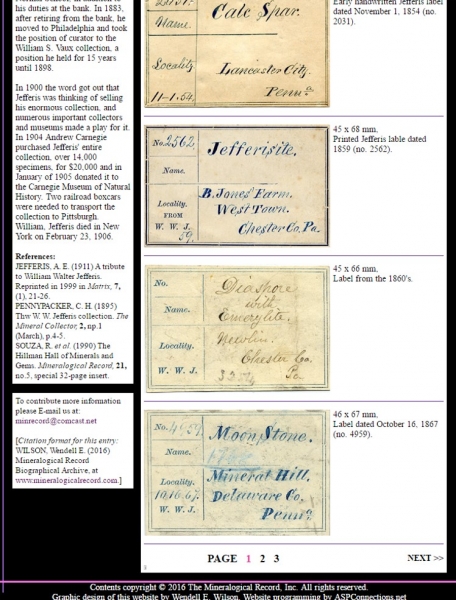 his duties at the bank. In 1883,
after retiring from the bank, he
moved to Philadelphia and took
the position of curator to the
William S. Vaux collection, a
position he held for 15 years
until 1898.
In 1900 the word got out that
Jefferis was thinking of selling
his enormous collection, and
numerous important collectors
and museums made a play for it.
In 1904 Andrew Carnegie
purchased Jefferis' entire
collection, over 14,000
specimens, for $20,000 and in
January of 1905 donated it to
the Carnegie Museum of Natural
History. Two railroad boxcars
were needed to transport the
collection to Pittsburgh.
William, Jefferis died in New
York on February 23, 1906.
References:
JEFFERIS, A. E. (1911) A tribute
to William Walter Jefferis.
Reprinted in 1999 in Matrix, 7,
(1), 21-26.
PENNYPACKER, C. H. (1895)
Thw W. W. Jefferis collection. The
Mineral Collector, 2, np.1
(March), p.4-5.
SOUZA, R. et al. (1990) The
Hillman Hall of Minerals and
Gems. Mineralogical Record, 21,
no.5, special 32-page insert.
To contribute more information
please E-mail us at:
minrecord@comcast.net
[Citation format for this entry:
WILSON, Wendell E. (2016)
Mineralogical Record
Biographical Archive, at
www.mineralogicalrecord.com.]
Calc Spar.
Name.
Locality
Lancaster City.
11-1.54.
Penna
Early handwritten Jefferis label
dated November 1, 1854 (no.
2031).
No. 2562,
Jefferisite,
Name.
Locality.
FROM
W. W. J.
59.
B. Jones' Farm.
West Town.
Chester Co, Pa.
45 x 68 mm,
Printed Jefferis lable dated
1859 (no. 2562).
No.
Diaspore
with
Name.
Emerylite.
Locality.
Newlin.
Chester Co.
W. W. J.
Pa.
45 x 66 mm,
Label from the 1860's.
No. 4959.
Moon Stone.
Name.
Locality.
10,16,67.
W. W. J.
Mineral Hill,
Delaware Co,
Penna
46 x 67 mm,
Label dated October 16, 1867
(no. 4959).
PAGE 1 2 3
NEXT >>
Contents copyright © 2016 The Mineralogical Record, Inc. All rights reserved.
Graphic design of this website by Wendell E. Wilson. Website programming by ASPConnections.net